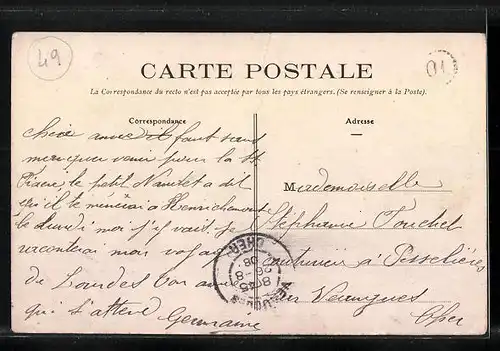 49
01
CARTE POSTALE
La Correspondance du recto n'est pas acceptée par tous les pays étrangers. (Se renseigner à la Poste).
Correspondance
Adresse
chère amie il faut sans
manquer venir pour la St
Pierre le petit Nautet a dit
qu'il te mènerai a Henrichemont
le lundi moi j'y vais je
raconterai mon voyage
de Lourdes ton amie
qui t'attend Germaine
Mademoiselle
Stéphanie Fouchet
couturière à Pesselières
par Veaugues
Cher
VEAUGUES
8 45
26 -8
08
CHER